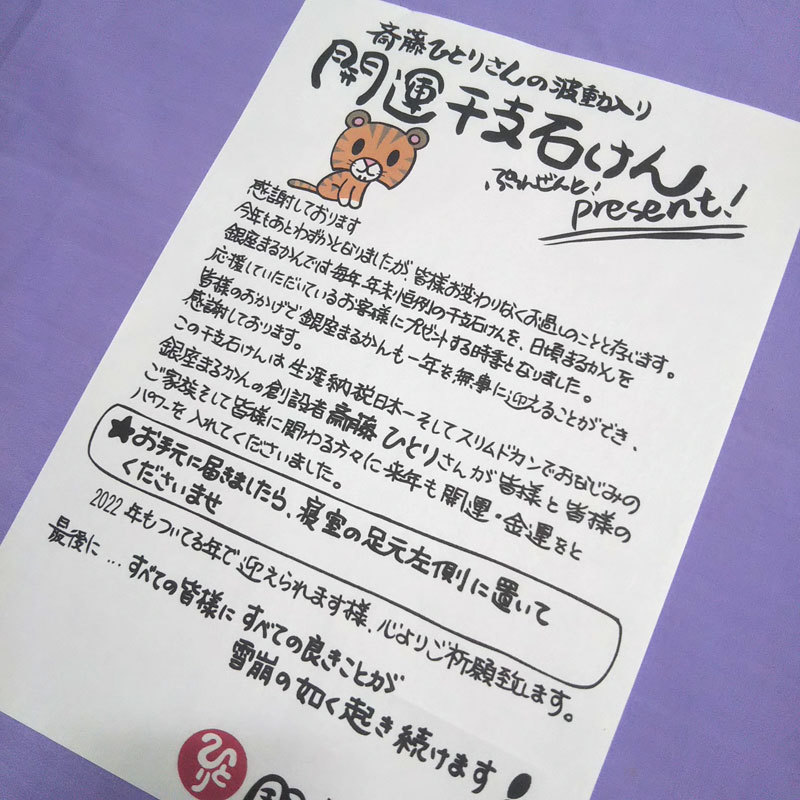 斎藤ひとりさんの波動入り
開運干支石けん
ぷれぜんと!
present!
感謝しております
今年もあとわずかとなりましたが皆様お変わりなくお過しのことと存じます。
銀座まるかんでは毎年、年末恒例の干支石けんを、日頃まるかんを
応援していただいているお客様にプレゼントする時季となりました。
皆様のおかげで銀座まるかんも一年を無事に迎えることができ、
感謝しております。
この干支石けんは生涯納税日本一そしてスリムドカンでおなじみの
銀座まるかんの創設者斎藤ひとりさんが皆様と皆様の
ご家族そして皆様に関わる方々に来年も開運・金運をと
パワーを入れてくださいました。
★お手元に届きましたら、寝室の足元左側に置いて
くださいませ
2022年もついてる年で迎えられます様、心よりご祈願致します。
最後に…すべての皆様にすべての良きことが
雪崩の如く起き続けます
ひとり